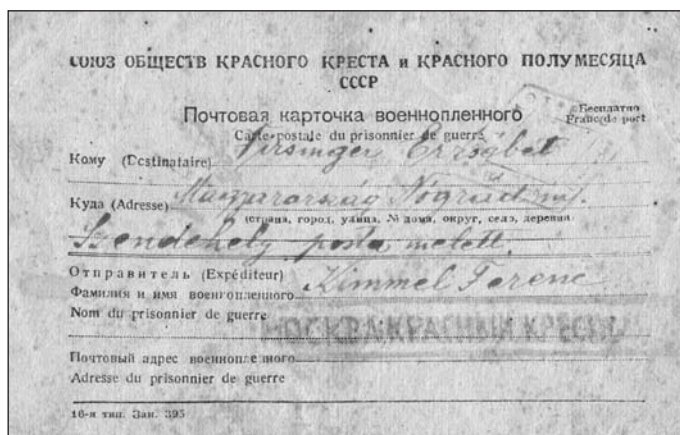 СОЮЗ ОБЩЕСТВ КРАСНОГО КРЕСТА и КРАСНОГО ПОЛУМЕСЯЦА
СССР
Почтовая карточка военнопленного
Бесплатно
Carte postale du prisonnier de guerre
Franc de port
Кому (Destinataire) Virsinger Erzsébet
Куда (Adresse) Magyarország Nógrád m.
(страна, город, улица, № дома, округ, село, деревня)
Szendehely posta melett.
Отправитель (Expéditeur)
Фамилия и имя военнопленного Kimmel Ferenc
Nom du prisonnier de guerre
МОСКВА КРАСНЫЙ КРЕСТ
Почтовый адрес военнопленного
Adresse du prisonnier de guerre
16-я тип. Зак. 395